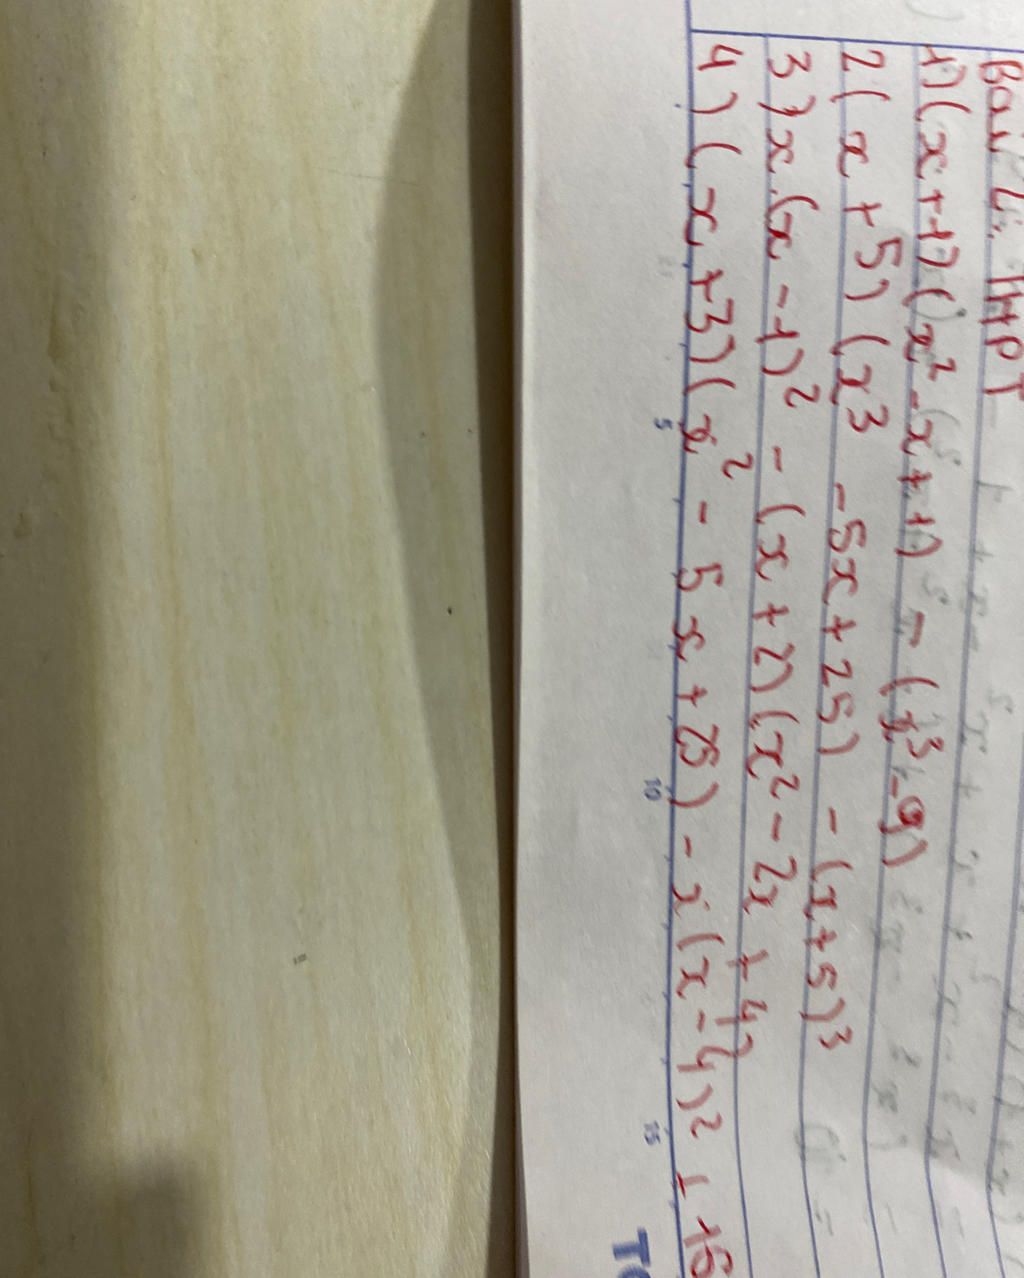 Bài 2: THPT
1) (x+1)(x² - x + 1) - (x³ - 9)
2( x + 5) (x³ - 5x + 25) - (x + 5)³
3) x (x - 1)² - (x + 2)(x² - 2x + 4)
4) (x + 3)(x² - 5x + 25) - x(x - 4)² + 16
5 10 15